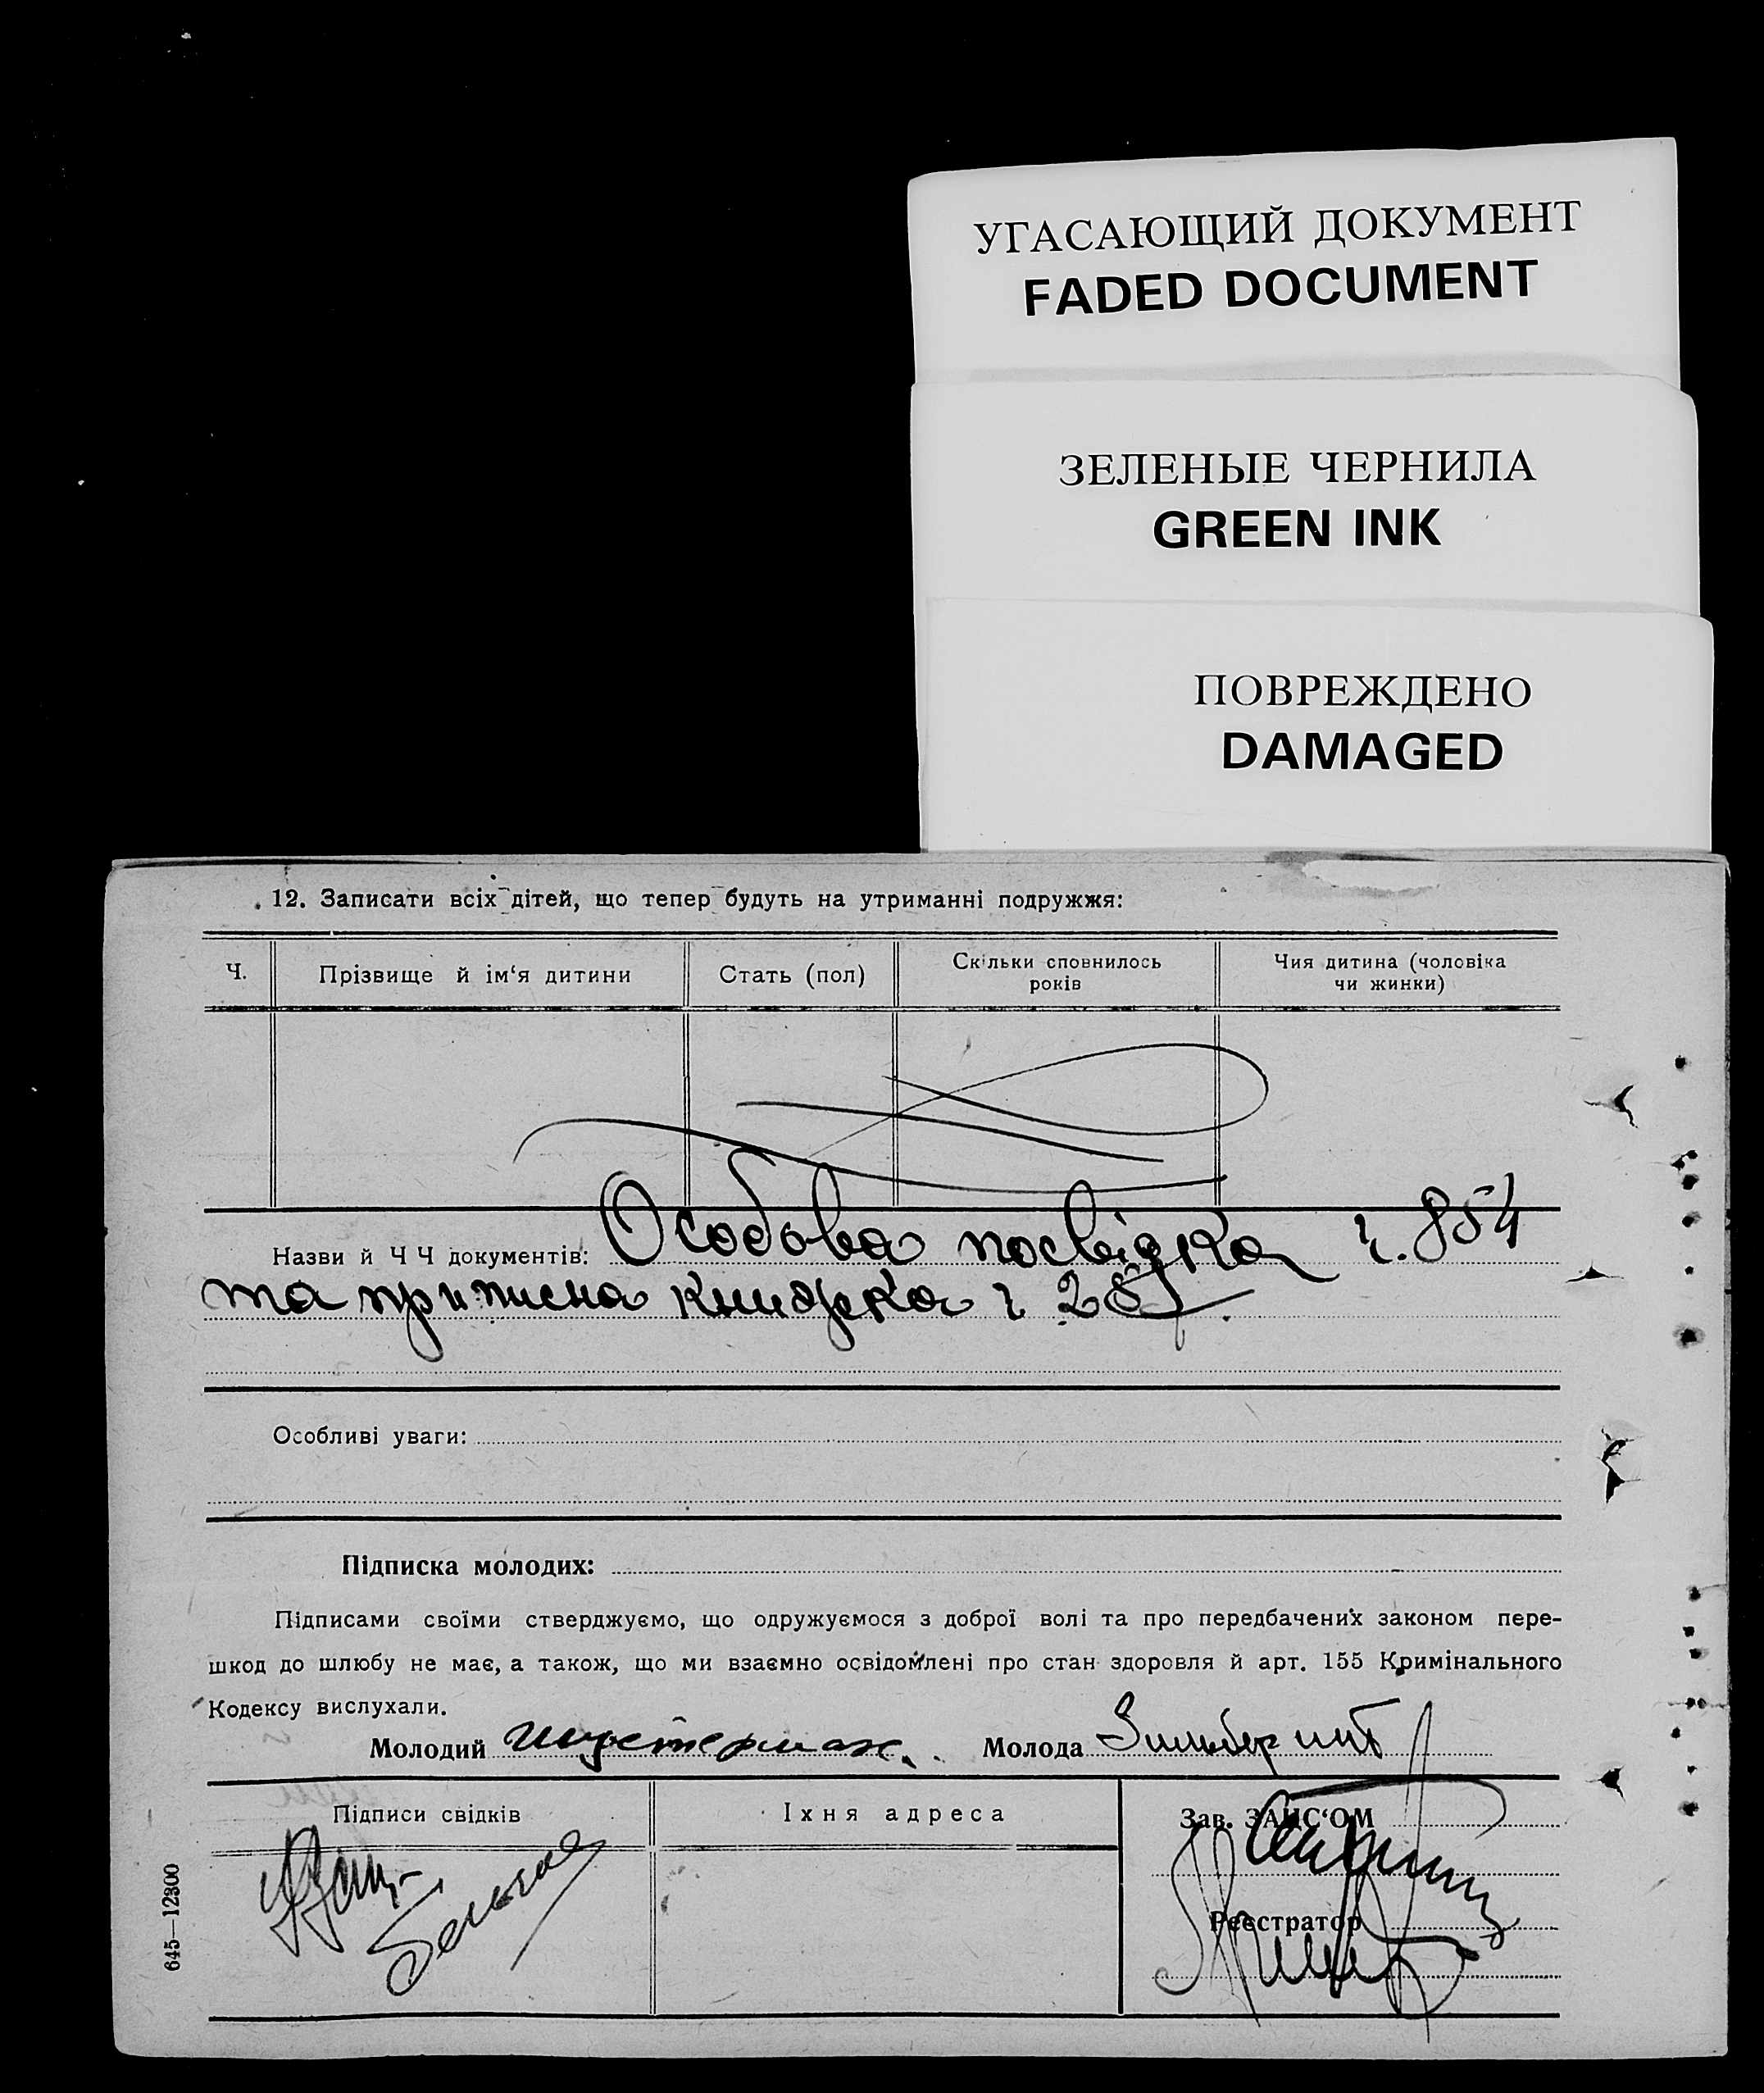 УГАСАЮЩИЙ ДОКУМЕНТ
FADED DOCUMENT
ЗЕЛЕНЫЕ ЧЕРНИЛА
GREEN INK
ПОВРЕЖДЕНО
DAMAGED
12. Записати всіх дітей, що тепер будуть на утриманні подружжя:
Ч. Прізвище й ім‘я дитини Стать (пол) Скільки сповнилось років Чия дитина (чоловіка чи жинки)
Назви й Ч Ч документів: Особова посвідка ч. 854
та приписна книжка ч
Особливі уваги:
Підписка молодих:
Підписами своїми стверджуємо, що одружуємося з доброї волі та про передбачених законом пере-
шкод до шлюбу не має, а також, що ми взаємно освідомлені про стан здоровля й арт. 155 Кримінального
Кодексу вислухали.
Молодий Шустерман. Молода Зильбер
Підписи свідків Їхня адреса Зав. ЗАГС‘ОМ
Реєстратор
645—12300